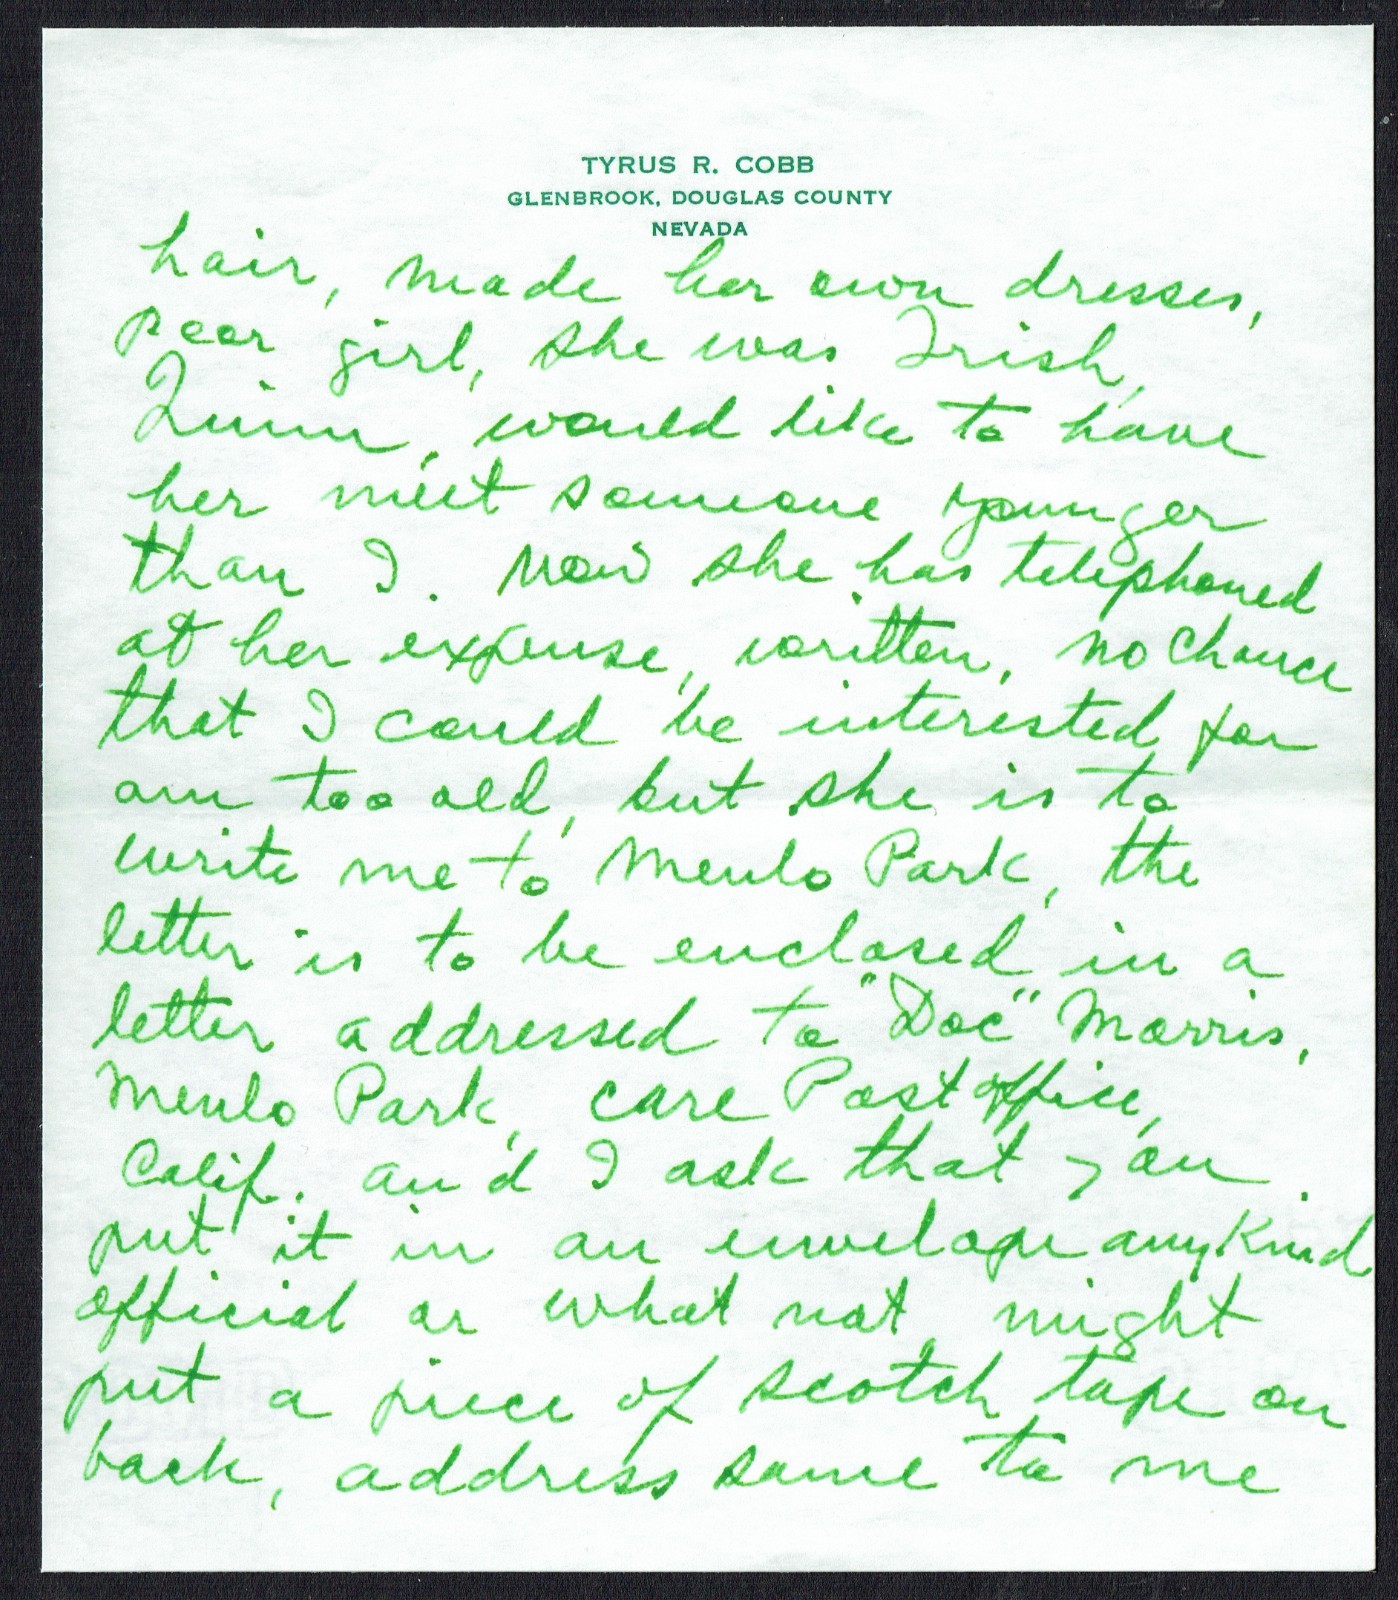 TYRUS R. COBB
GLENBROOK, DOUGLAS COUNTY
NEVADA
hair, made her own dresses,
poor girl, she was Irish,
Quinn, would like to have
her meet someone younger
than I. Now she has telephoned
at her expense, written, no chance
that I could be interested for
am too old, but she is to
write me to Menlo Park, the
letter is to be enclosed in a
letter addressed to "Doc" Morris,
Menlo Park, care Postoffice,
Calif. and I ask that you
put it in an envelope any kind
official or what not, might
put a piece of scotch tape on
back, address same to me